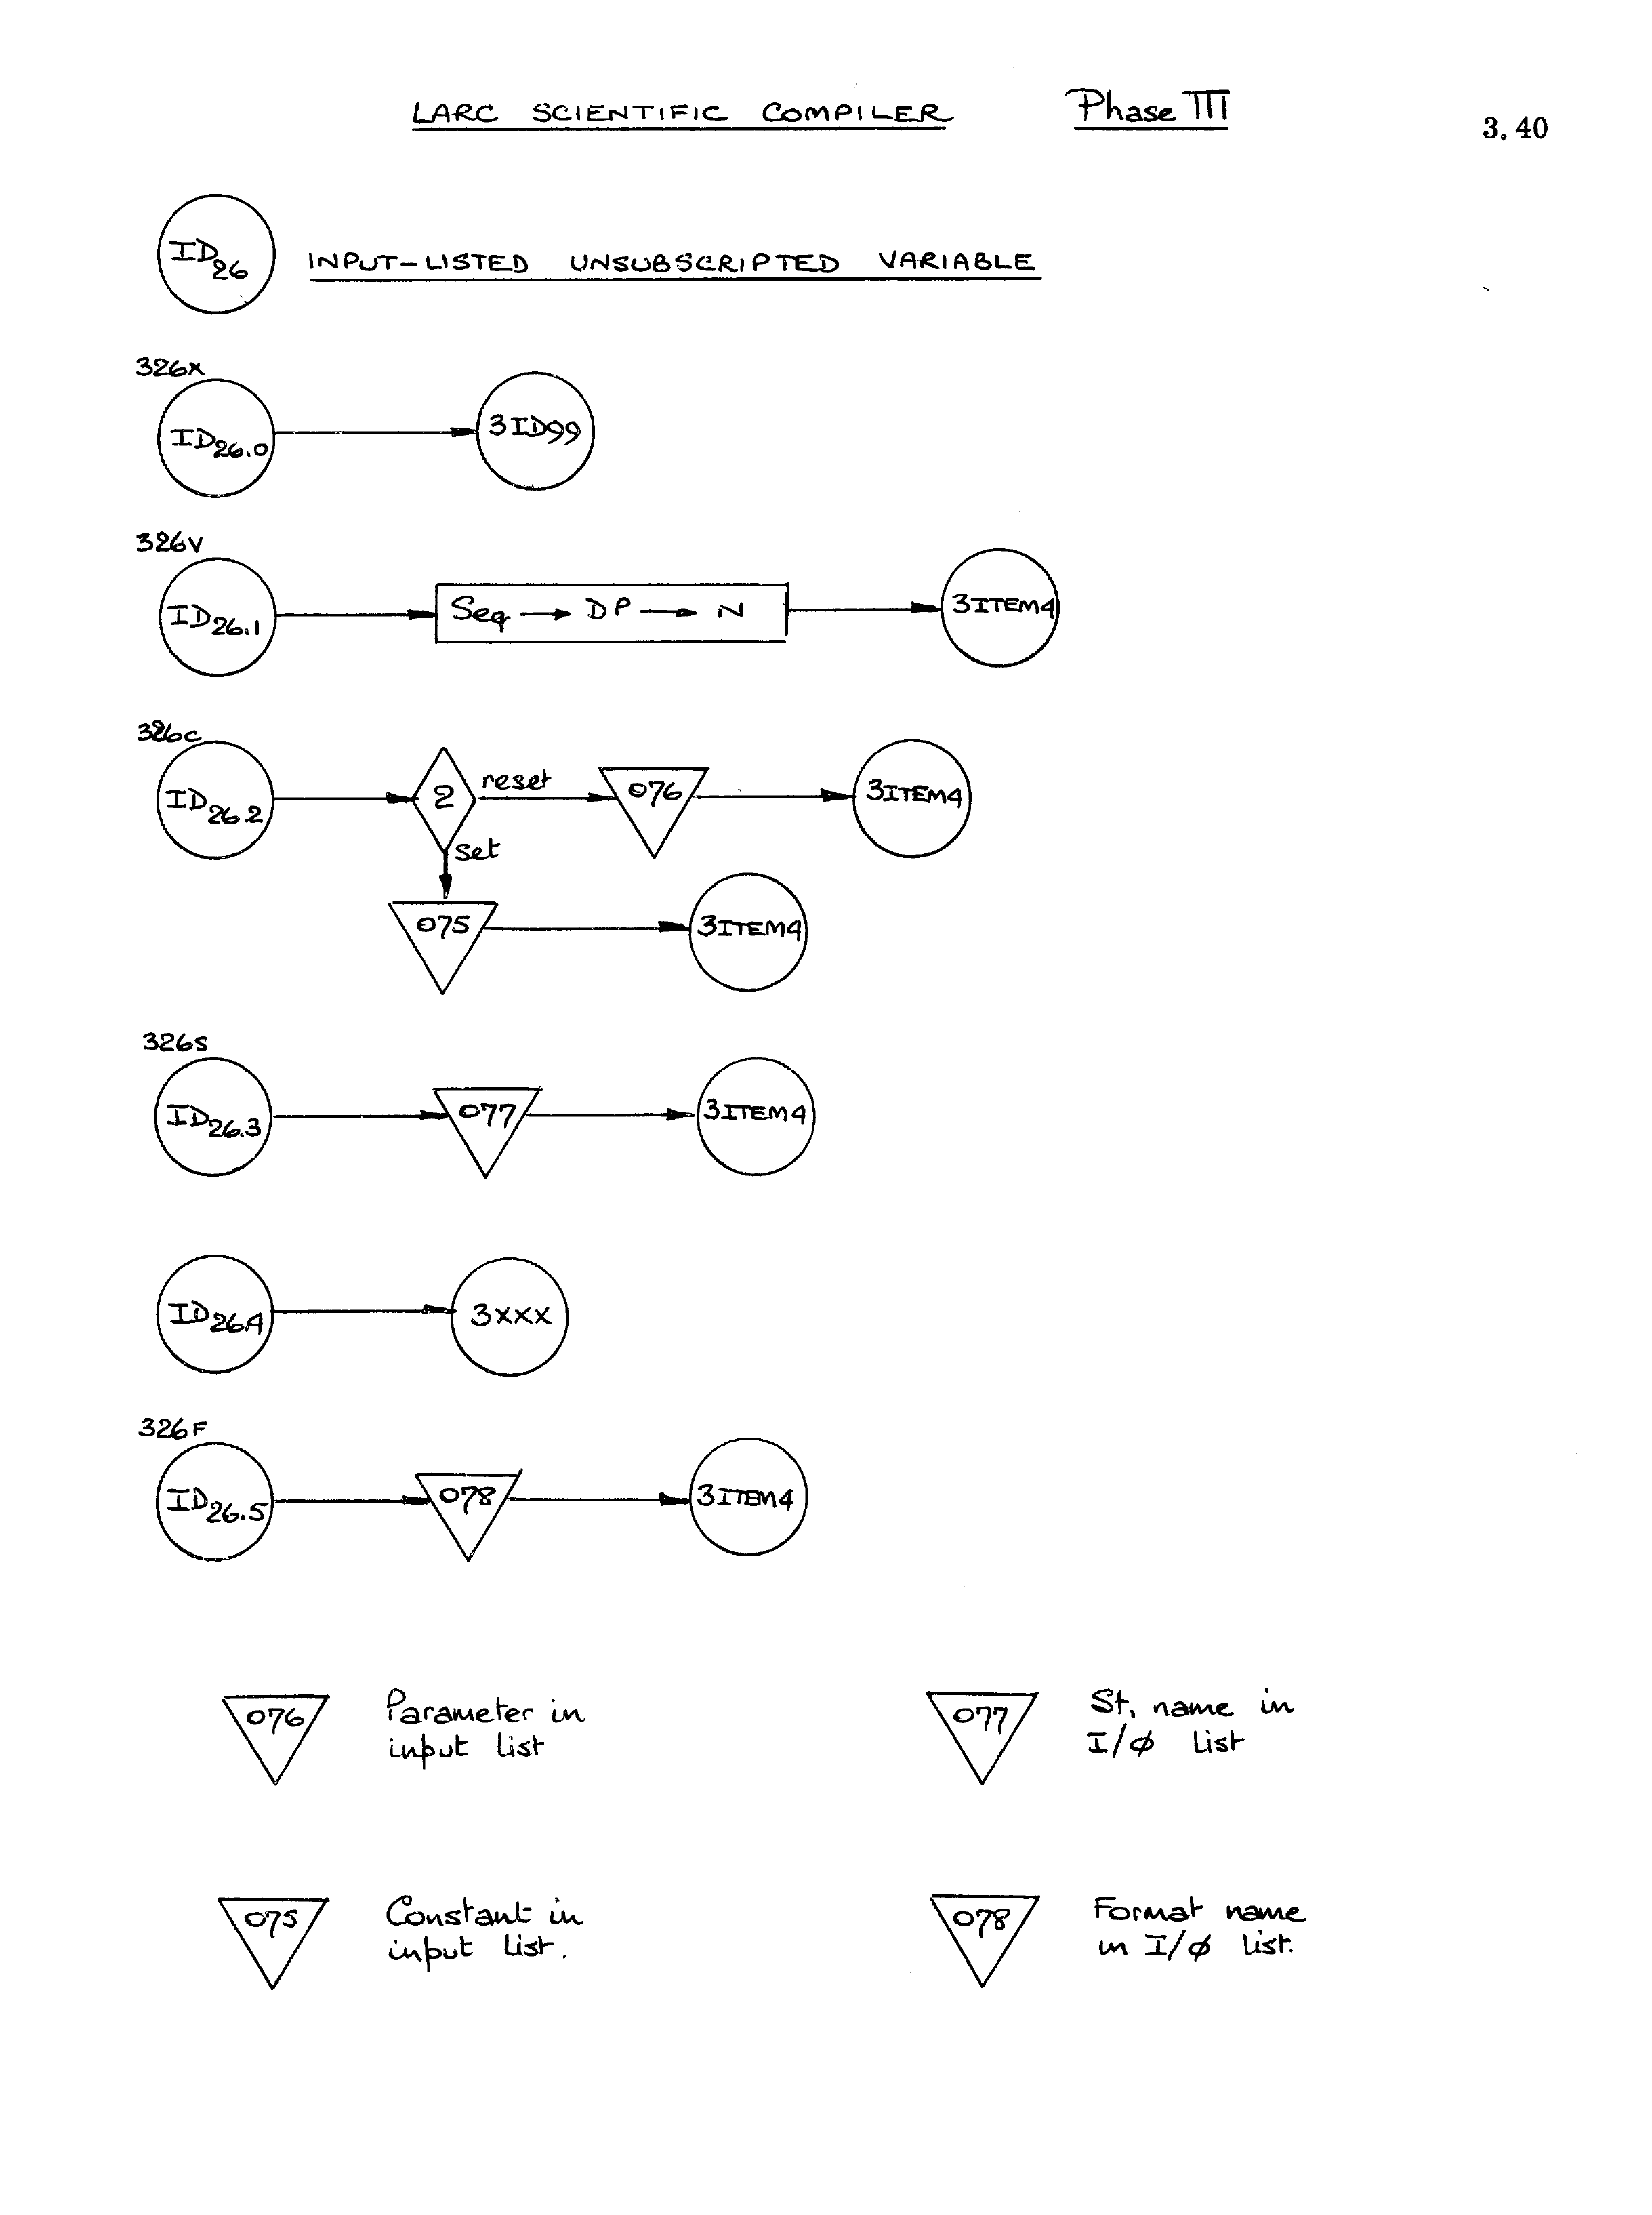 LARC SCIENTIFIC COMPILER Phase III
3.40
ID26 INPUT-LISTED UNSUBSCRIPTED VARIABLE
326X
ID26.0 3ID99
326V
ID26.1 Seq → DP → N 3ITEM4
326C
ID26.2 2 reset 076 3ITEM4
set
075 3ITEM4
326S
ID26.3 077 3ITEM4
ID26A 3XXX
326F
ID26.5 078 3ITEM4
076 Parameter in
input list
077 St. name in
I/Ø list
075 Constant in
input list.
078 Format name
in I/Ø list.